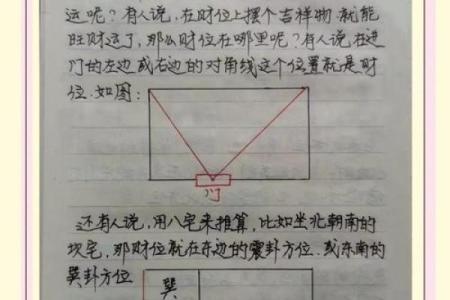 运呢？有人说，在财位上摆个吉祥物 就能
旺财运了，那么财位在哪里呢？有人说在进
门的左边 或右边的对角线这个位置就是财
位.如图：
门
还有人说，用八宅来推算，比如坐北朝南的
坎宅，那财位就在东边的震卦方位.或东南的
巽卦方位
巽